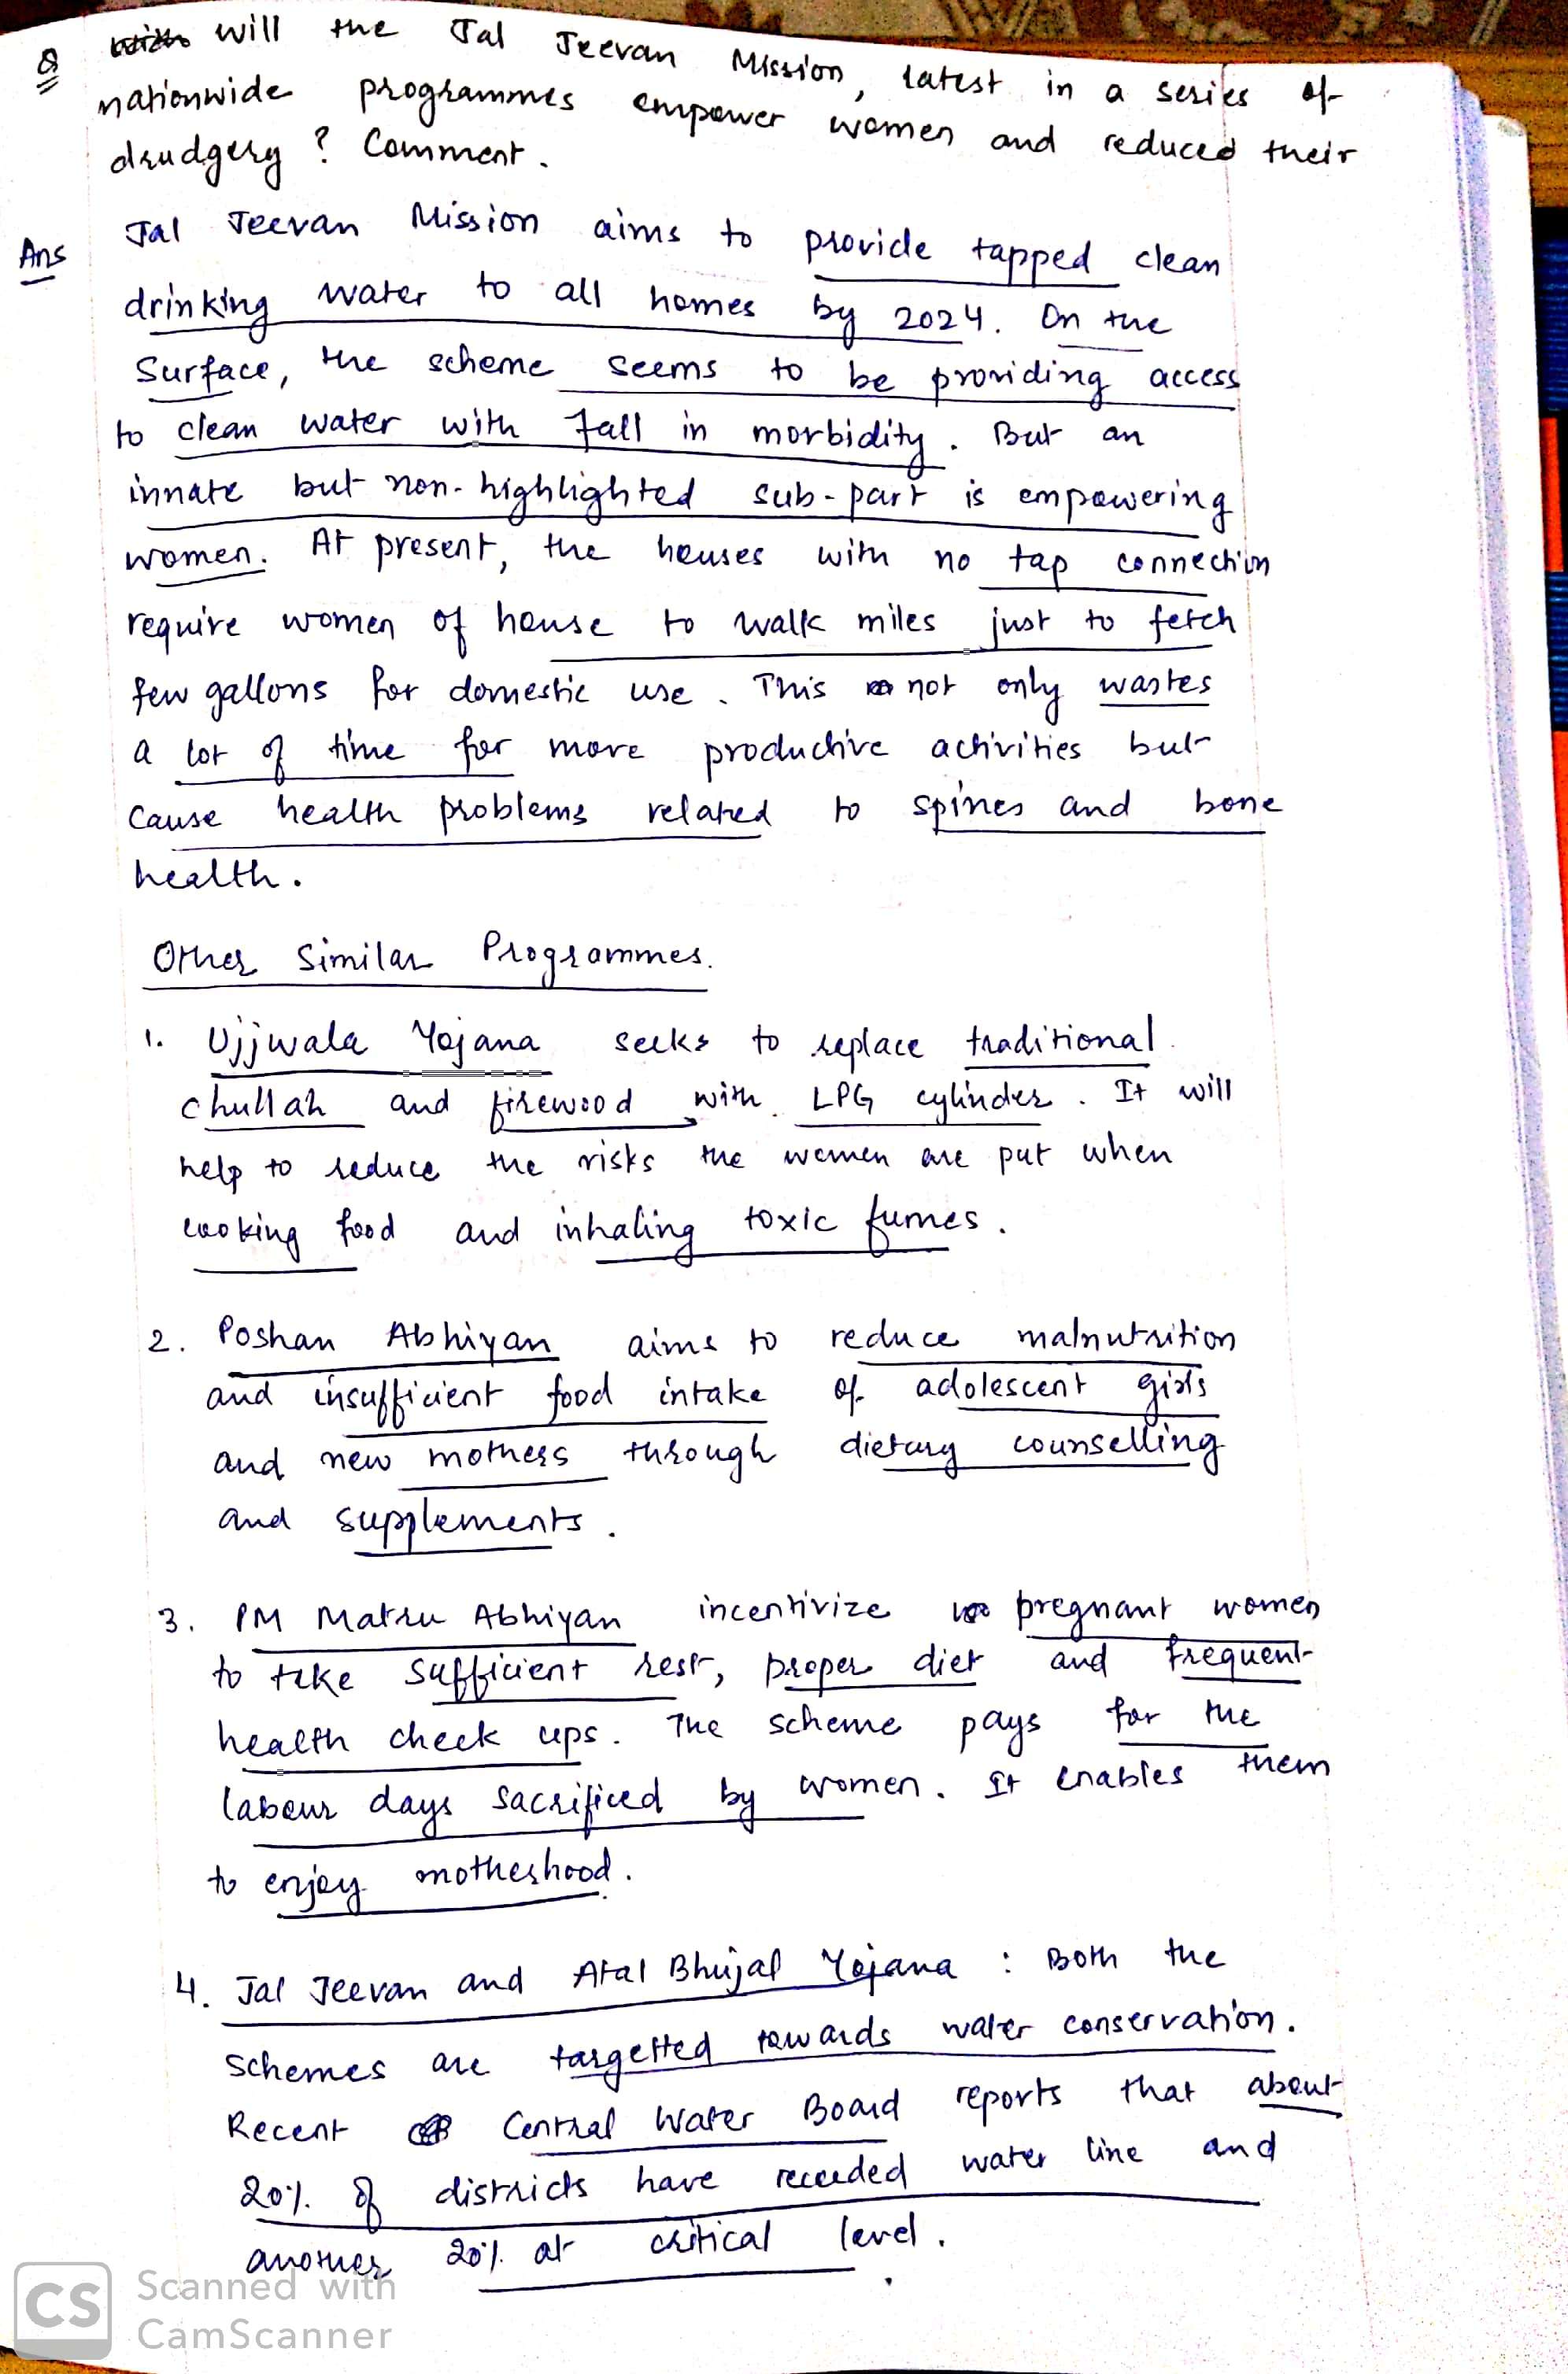 Q will the Jal Jeevan Mission, latest in a series of
nationwide programmes empower women and reduced their
drudgery ? Comment.
Ans Jal Jeevan Mission aims to provide tapped clean
drinking water to all homes by 2024. On the
Surface, the scheme seems to be providing access
to clean water with fall in morbidity. But an
innate but non-highlighted sub-part is empowering
women. At present, the houses with no tap connection
require women of house to walk miles just to fetch
few gallons for domestic use. This not only wastes
a lot of time for more productive activities but
cause health problems related to spines and bone
health.
Other Similar Programmes.
1. Ujjwala Yojana seeks to replace traditional
chullah and firewood with LPG cylinder. It will
help to reduce the risks the women are put when
cooking food and inhaling toxic fumes.
2. Poshan Abhiyan aims to reduce malnutrition
and insufficient food intake of adolescent girls
and new mothers through dietary counselling
and supplements.
3. PM Matru Abhiyan incentivize pregnant women
to take sufficient rest, proper diet and frequent
health check ups. The scheme pays for the
labour days sacrificed by women. It enables them
to enjoy motherhood.
4. Jal Jeevan and Atal Bhujal Yojana : Both the
schemes are targetted towards water conservation.
Recent Central Water Board reports that about
20% of districts have receeded water line and
another 20% at critical level.
CS Scanned with
CamScanner